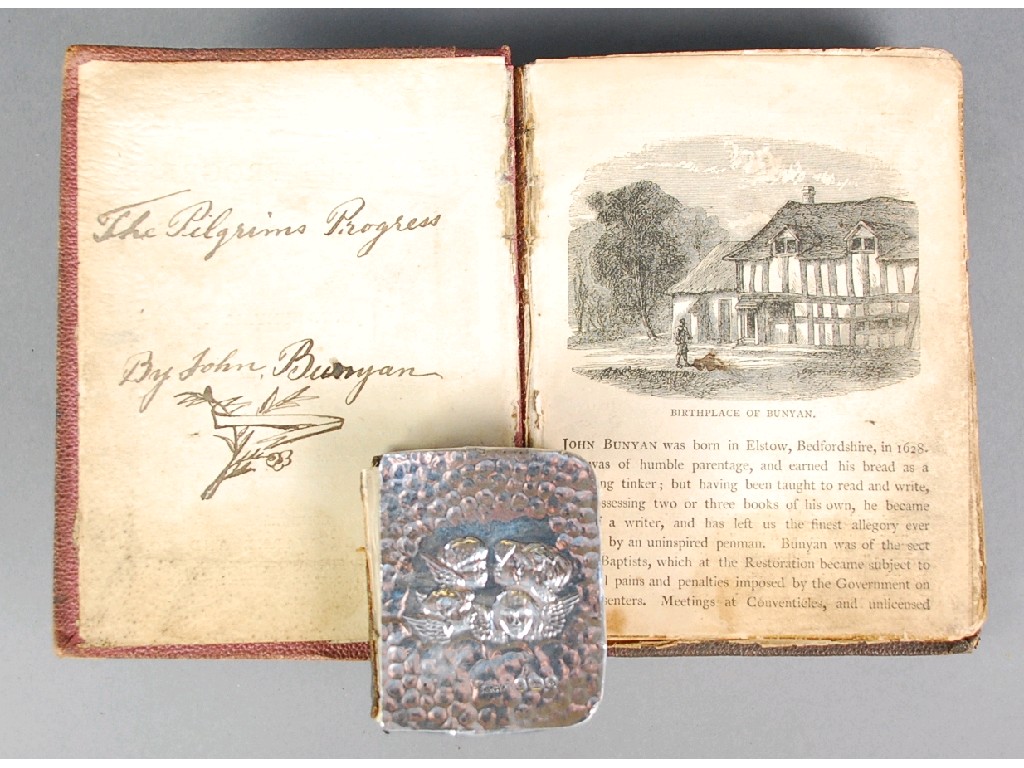 The Pilgrims Progress
By John Bunyan
BIRTHPLACE OF BUNYAN.
JOHN BUNYAN was born in Elstow, Bedfordshire, in 1628.
was of humble parentage, and earned his bread as a
ng tinker; but having been taught to read and write,
ssessing two or three books of his own, he became
a writer, and has left us the finest allegory ever
by an uninspired penman. Bunyan was of the sect
Baptists, which at the Restoration became subject to
l pains and penalties imposed by the Government on
senters. Meetings at Conventicles, and unlicensed